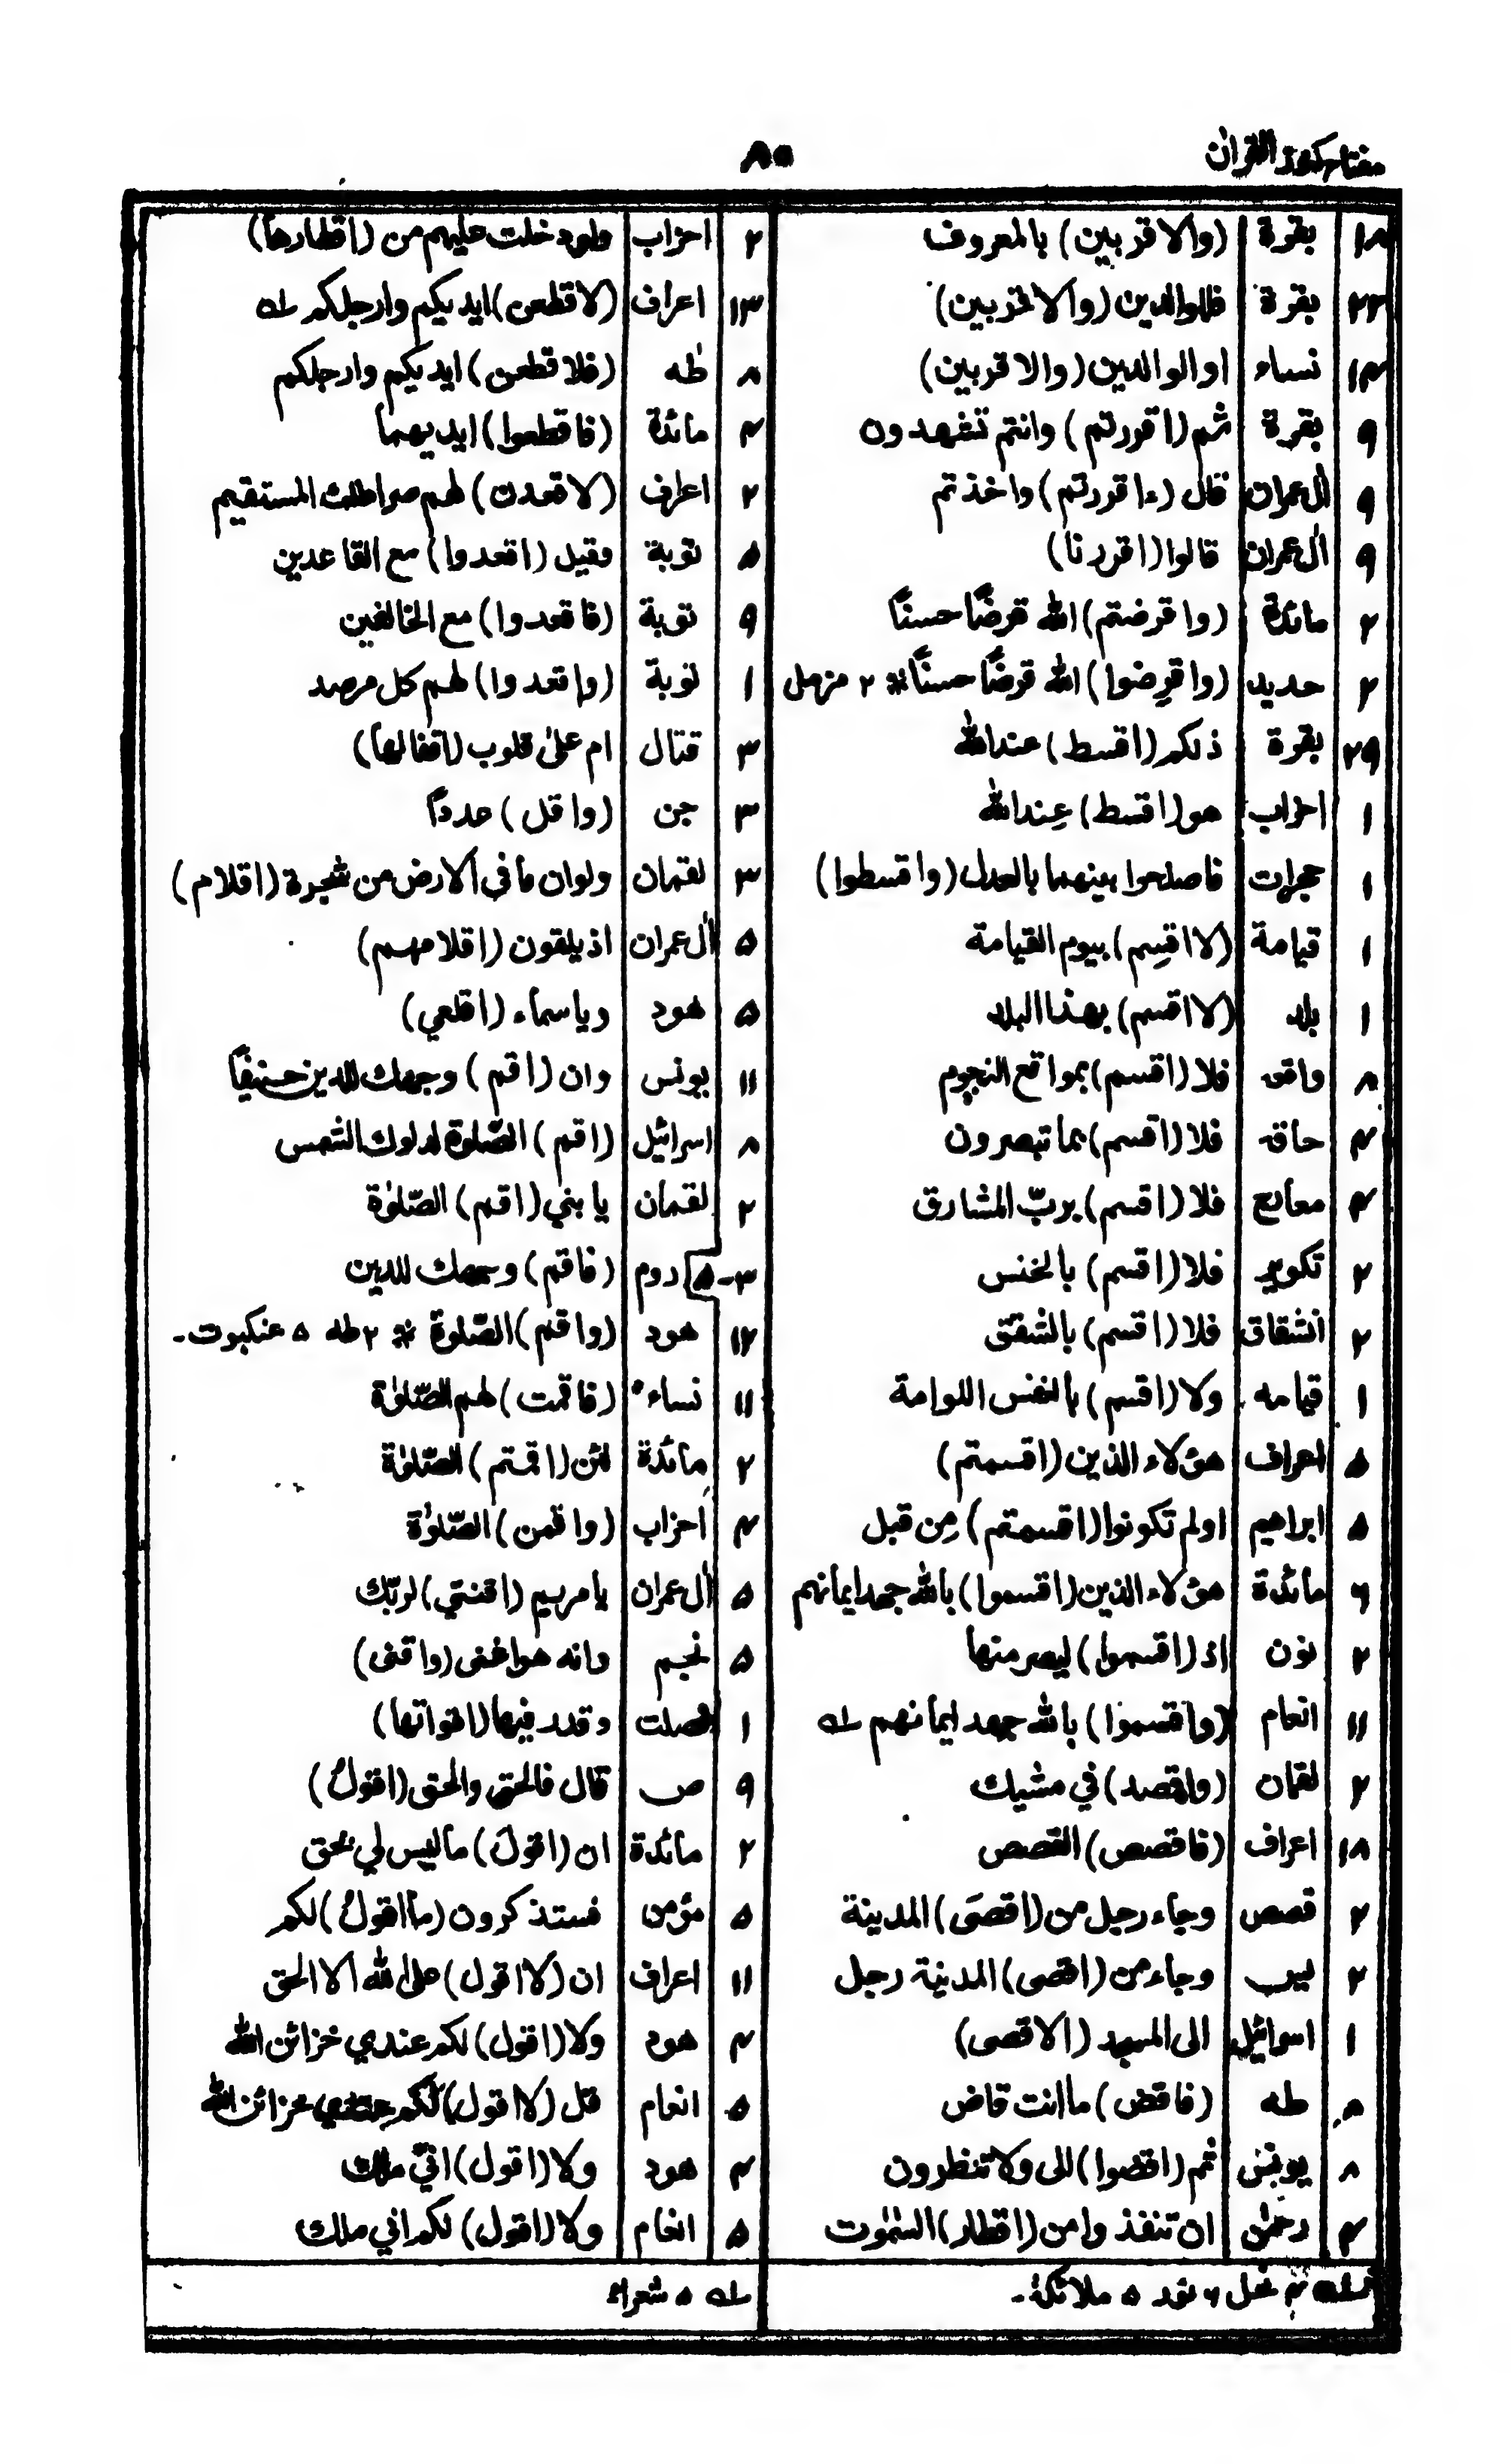 مفتاح كنوز القران
۸۵
۱۸ بقرة (والاقربين) بالمعروف
۲۶ بقرة فللوالدين (والاقربين)
۱۴ نساء اوالوالدين (والاقربين)
۹ بقرة ثم (اقررتم) وانتم تشهدون
۹ اٰل عمران قال (ءاقررتم) واخذتم
۹ اٰل عمران قالوا (اقررنا)
۲ مائدة (واقرضتم) الله قرضًا حسنًا
۲ حديد (واقرِضوا) الله قرضًا حسنًا * ۲ مزمل
۲۹ بقرة ذلكم (اقسط) عندالله
۱ احزاب هو (اقسط) عِندالله
۱ حجرات فاصلحوا بينهما بالعدل (واقسطوا)
۱ قيامة (لااقسِم) بيوم القيامة
۱ بلد (لااقسم) بهذا البلد
۸ واقعه فلا (اقسم) بمواقع النجوم
۲ حاقه فلا (اقسم) بما تبصرون
۲ معارج فلا (اقسم) بربّ المشارق
۲ تكوير فلا (اقسم) بالخنس
۲ انشقاق فلا (اقسم) بالشفق
۱ قيامه ولا (اقسم) بالنفس اللوامة
۵ اعراف هؤلاء الذين (اقسمتم)
۵ ابراهيم اولم تكونوا (اقسمتم) مِن قبل
۶ مائدة هؤلاء الذين (اقسموا) بالله جهد ايمانهم
۲ نون اذ (اقسموا) ليصرمنها
۱۱ انعام (واقسموا) بالله جهد ايمانهم ـلـه
۲ لقمان (واقصد) في مشيك
۱۸ اعراف (فاقصص) القصص
۲ قصص وجاء رجل من (اقصَى) المدينة
۲ يس وجاء من (اقصى) المدينة رجل
۱ اسرائيل الى المسجد (الاقصى)
۸ طه (فاقض) ماانت قاض
۸ يونس ثم (اقضوا) الى ولا تنظرون
۲ رحمٰن ان تنفذوا من (اقطار) السّمٰوٰت
۲ احزاب ولو دخلت عليهم من (اقطارها)
۱۳ اعراف (لاقطعن) ايديكم وارجلكم ـلـه
۸ طٰه (فلاقطعن) ايديكم وارجلكم
۴ مائدة (فاقطعوا) ايديهما
۲ اعراف (لاقعدن) لهم صراطك المستقيم
۵ توبة وقيل (اقعدوا) مع القاعدين
۹ توبة (فاقعدوا) مع الخالفين
۱ توبة (واقعدوا) لهم كل مرصد
۳ قتال ام علىٰ قلوب (اقفالها)
۳ جن (واقل) عددًا
۳ لقمان ولوان ما في الارض من شجرة (اقلام)
۵ اٰل عمران اذ يلقون (اقلامهم)
۵ هود وياسماء (اقلعي)
۱۱ يونس وان (اقم) وجهك للدين حنيفًا
۸ اسرائيل (اقم) الصّلوة لدلوك الشمس
۲ لقمان يابني (اقم) الصّلوٰة
۳-۵ روم (فاقم) وجهك للدين
۱۲ هود (واقم) الصّلوة * ۲ طه ۵ عنكبوت۔
۱۱ نساء (فاقمت) لهم الصّلوٰة
۲ مائدة لئن (اقمتم) الصّلوٰة
۴ احزاب (واقمن) الصّلوٰة
۵ اٰل عمران يامريم (اقنتي) لربّك
۵ نجم وانه هواغنى (واقنى)
۱ فصلت وقدر فيها (اقواتها)
۹ ص قال فالحق والحق (اقولُ)
۲ مائدة ان (اقولَ) ما ليس لي بحق
۵ مؤمن فستذكرون (مااقولُ) لكم
۱۱ اعراف ان (لااقول) على الله الا الحق
۴ هود ولا (اقول) لكم عندي خزائن الله
۵ انعام قل (لااقول) لكم عندي خزائن الله
۴ هود ولا (اقول) اني ملك
۵ انعام ولا (اقول) لكم اني ملك
ـلـه نحل ۶ نور ۵ ملائكة۔
ـلـه ۵ شعراء